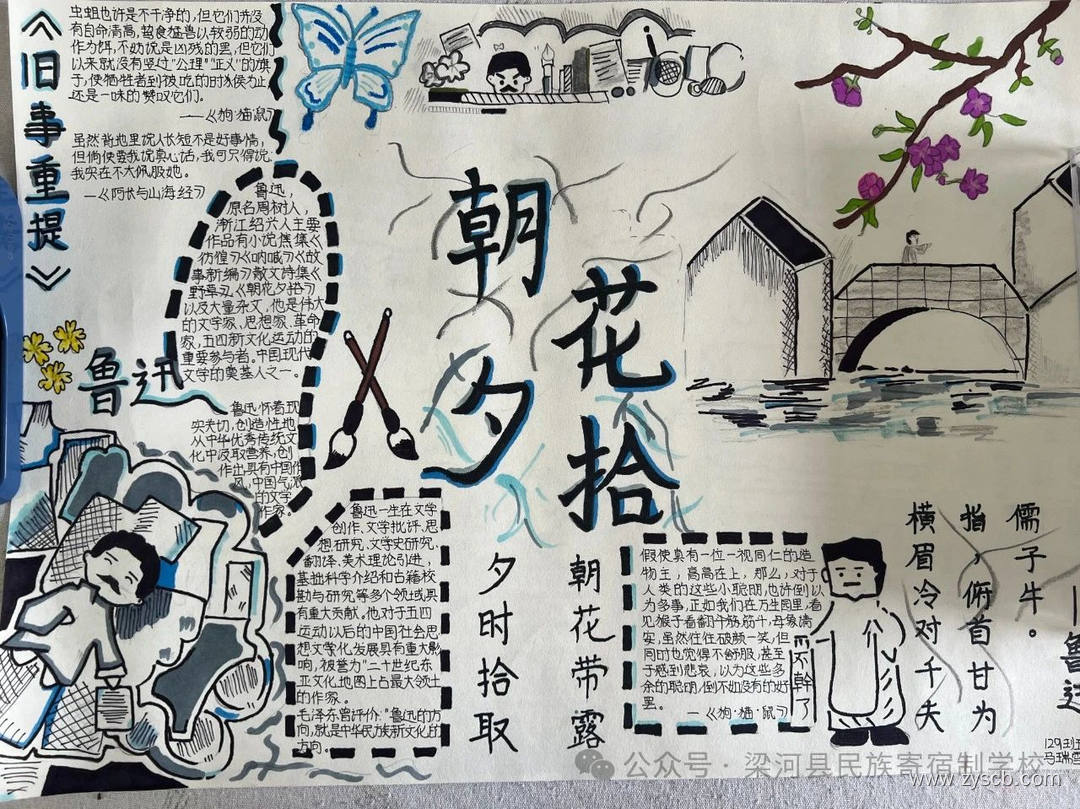 《旧事重提》
虫蛆也许是不干净的,但它们并没
有自命清高,鸷食猛兽以较弱的动
作为饵,不妨说是凶残的罢,但它们
以来就没有竖过“公理”“正义”的旗
子,使牺牲者到被吃的时候为止,
还是一味的赞叹它们。
——《狗·猫·鼠》
虽然背地里说人长短不是好事情,
但倘使要我说真心话,我可只得说:
我实在不大佩服她。
——《阿长与山海经》
鲁迅,
原名周树人,
浙江绍兴人主要
作品有小说集《
彷徨》《呐喊》《故
事新编》散文诗集《
野草》、《朝花夕拾》
以及大量杂文,他是伟大
的文学家、思想家、革命
家,五四新文化运动的
重要参与者。中国现代
文学的奠基人之一。
鲁迅
鲁迅怀着现
实关切,创造性地
从中华优秀传统文
化中汲取营养,创
作出具有中国作
风,中国气派
的文学
作家。
鲁迅一生在文学
创作、文学批评、思
想研究、文学史研究、
翻译、美术理论引进,
基础科学介绍和古籍校
勘与研究等多个领域具
有重大贡献。他对于五四
运动以后的中国社会思
想文学化发展具有重大影
响,被誉为“二十世纪东
亚文化地图上占最大领土
的作家。
毛泽东曾评价:“鲁迅的方
向,就是中华民族新文化的
方向。
朝
花
夕
拾
朝花带露
夕时拾取
假使真有一位一视同仁的造
物主,高高在上,那么,对于
人类的这些小聪明,也许倒以
为多事,正如我们在万生园里,看
见猴子看翻斗筋斗,母象请
安,虽然往往破颜一笑,但
同时也觉得不舒服,甚至
于感到悲哀,以为这些多
余的聪明,倒不如没有的好
罢。
——《狗·猫·鼠》
不幹了
横眉冷对千夫
指,俯首甘为
儒子牛。
—鲁迅
129班
公众号·梁河县民族寄宿制学校
www.zyscb.com